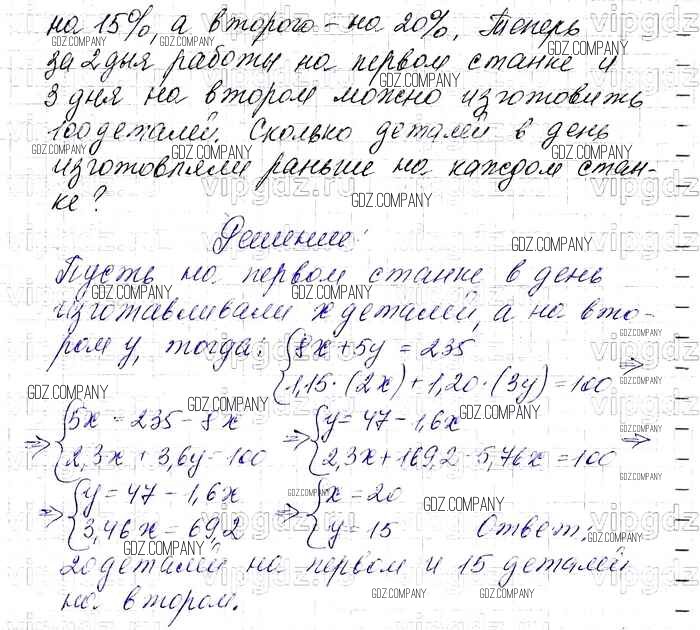 на 15%, а второго - на 20%. Теперь
за 2 дня работы на первом станке и
3 дня на втором можно изготовить
100 деталей. Сколько деталей в день
изготовляли раньше на каждом стан-
ке?
Решение:
Пусть на первом станке в день
изготавливали x деталей, а на вто-
ром y, тогда: { 8x + 5y = 235
1,15·(2x) + 1,20·(3y) = 100 ⇒
⇒ { 5x = 235 - 8x
2,3x + 3,6y = 100
⇒ { y = 47 - 1,6x
2,3x + 169,2 - 5,76x = 100 ⇒
⇒ { y = 47 - 1,6x
3,46x = 69,2
⇒ { x = 20
y = 15 Ответ:
20 деталей на первом и 15 деталей
на втором.